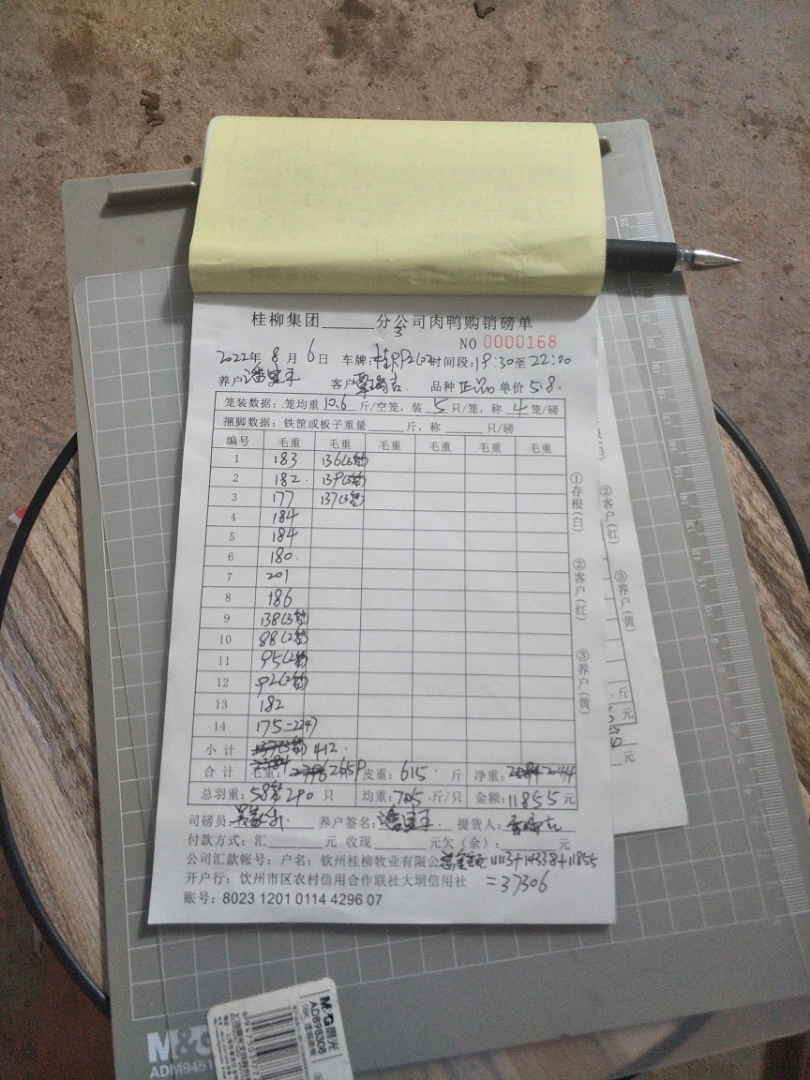 桂柳集团______分公司肉鸭购销磅单
3
NO 0000168
2022年 8 月 6日 车牌: 时间段:18:30至22:00
养户 客户 品种 正品 单价 5.8.
笼装数据: 笼均重 10.6 斤/空笼, 装 5 只/笼, 称 4 笼/磅
捆脚数据: 铁筐或板子重量______斤, 称______只/磅
编号 毛重 毛重 毛重 毛重 毛重 毛重
1 183 136(3笼)
2 182 139(3笼)
3 177 137(3笼)
4 184
5 184
6 180
7 201
8 186
9 138(3笼)
10 88(2笼)
11 95(2笼)
12 92(2笼)
13 182
14 175=2247
小计 412
合计 毛重: 2659 皮重: 615 斤 净重: 2044
总羽重: 58笼 290 只 均重: 7.05 斤/只 金额: 11855 元
司磅员: 养户签名: 提货人:
付款方式: 汇______元 收现______元欠(余):______元
公司汇款帐号: 户名: 钦州桂柳牧业有限公 总金额: 11113+14338+11855
开户行: 钦州市区农村信用合作联社大垌信用社 =37306
账号: 8023 1201 0114 4296 07
①存根(白)
②客户(红)
③养户(黄)
②客户(红)
③养户(黄)
斤
元
元
M&G
ADM9451
M&G晨光
ADB98308